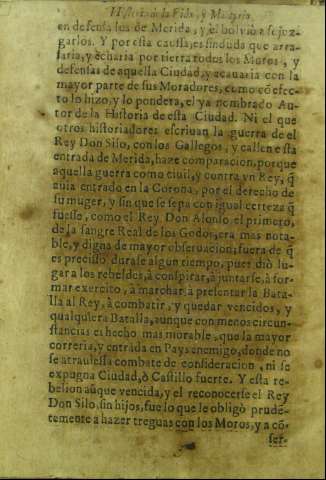 Historia de la Vida, y Martyrio
en defensa los de Merida, y el bolviò a sojuz-
garlos. Y por esta caussa, es sin duda que arra-
saria, y echaria por tierra todos los Moros, y
defensas de aquella Ciudad, y acauaria con la
mayor parte de sus Moradores, como cõ efec-
to lo hizo, y lo pondera, el ya nombrado Au-
tor de la Historia de esta Ciudad. Ni el que
otros historiadores escriuan la guerra de el
Rey Don Silo, con los Gallegos, y callen esta
entrada de Merida, haze comparacion, porque
aquella guerra como ciuil, y contra vn Rey, q̃
auia entrado en la Corona, por el derecho de
su muger, y sin que se sepa con igual certeza q̃
fuesse, como el Rey Don Alonso el primero,
de la sangre Real de los Godos, era mas nota-
ble, y digna de mayor obseruacion; fuera de q̃
es precisso durase algun tiempo, pues diò lu-
gar a los rebeldes, à conspirar, à juntarse, à for-
mar exercito, à marchar, à presentar la Bata-
lla al Rey, à combatir, y quedar vencidos, y
qualquiera Batalla, aunque con menos circun-
stancias es hecho mas miorable, que la mayor
correria, y entrada en Pays enemigo, donde no
se atrauiessa combate de consideracion, ni se
expugna Ciudad, ò Castillo fuerte. Y esta re-
belion aũque vencida, y el reconocerse el Rey
Don Silo, sin hijos, fue lo que le obligò prudẽ-
temente a hazer treguas con los Moros, y a cõ-
ser-